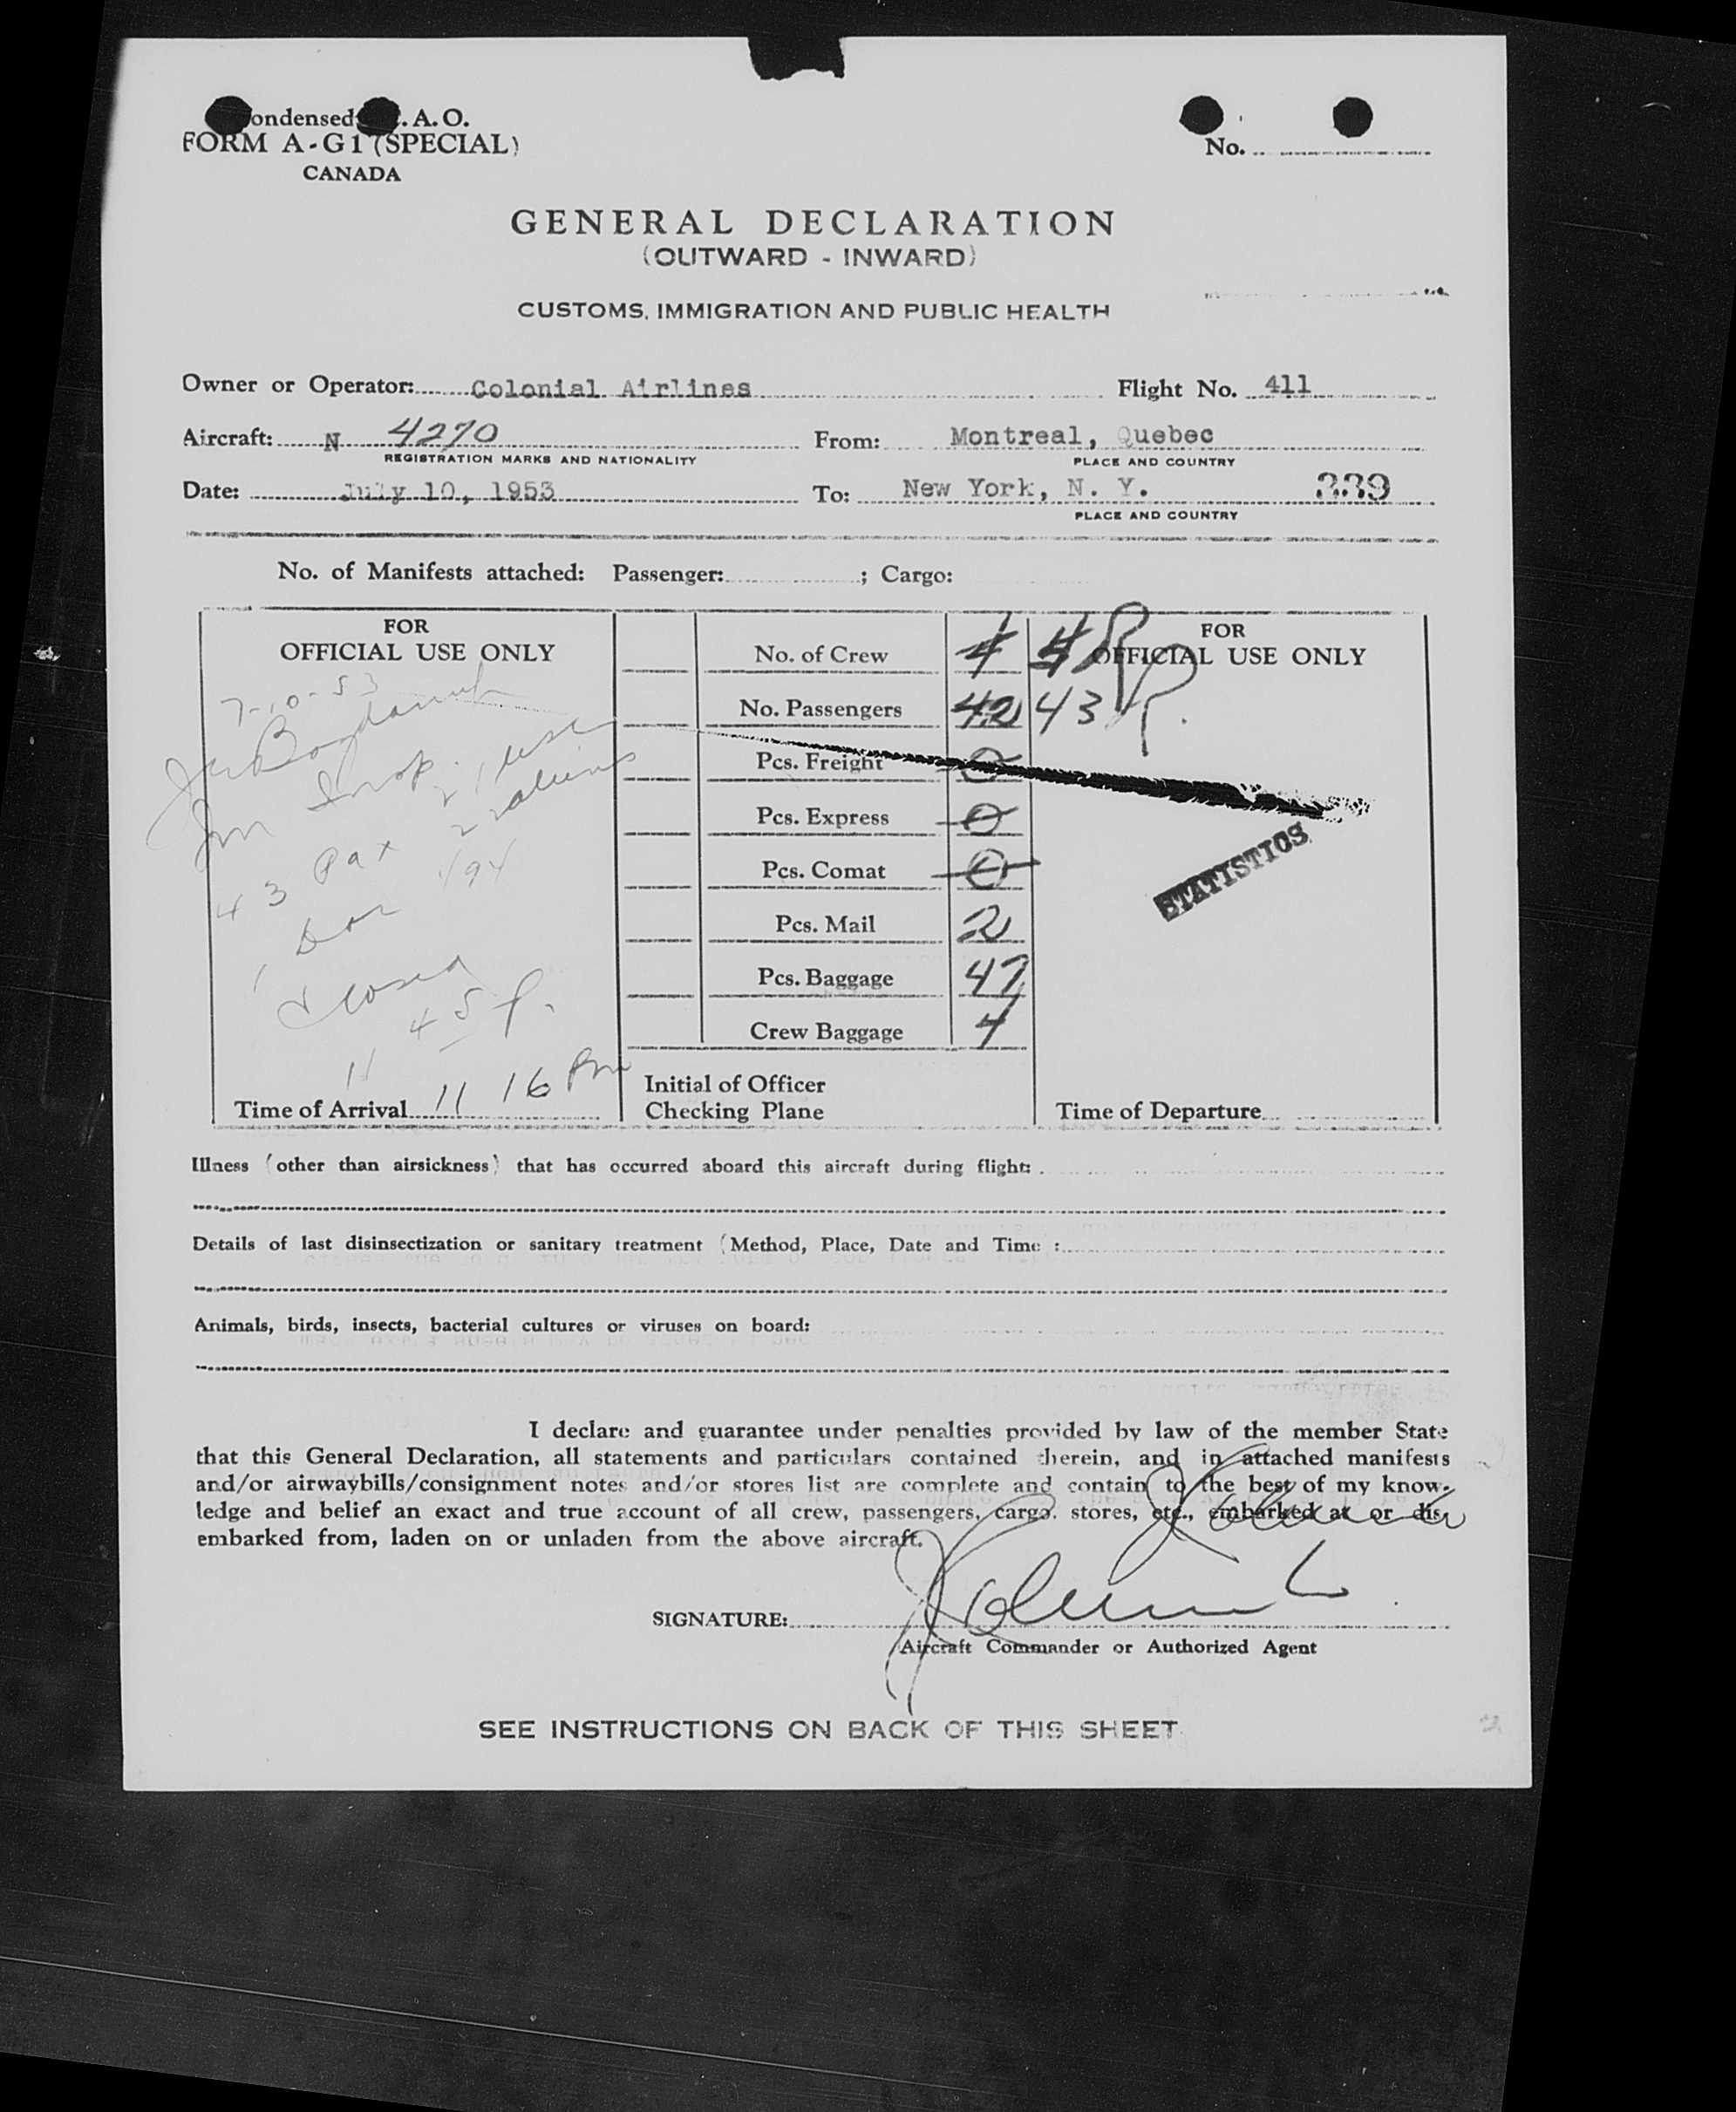 ondensed .A.O.
FORM A-G1 (SPECIAL)
CANADA
No.
GENERAL DECLARATION
(OUTWARD - INWARD)
CUSTOMS, IMMIGRATION AND PUBLIC HEALTH
Owner or Operator: Colonial Airlines Flight No. 411
Aircraft: N 4270 From: Montreal, Quebec
REGISTRATION MARKS AND NATIONALITY PLACE AND COUNTRY
Date: July 10, 1953 To: New York, N. Y. 339
PLACE AND COUNTRY
No. of Manifests attached: Passenger: ; Cargo:
FOR
OFFICIAL USE ONLY
7-10-53
43 Pax
closed
45
Time of Arrival 11 16 Pm
No. of Crew 4 4
No. Passengers 42 43
Pcs. Freight 0
Pcs. Express 0
Pcs. Comat 0
Pcs. Mail 2
Pcs. Baggage 47
Crew Baggage 4
Initial of Officer
Checking Plane
FOR
OFFICIAL USE ONLY
STATISTICS
Time of Departure
Illness (other than airsickness) that has occurred aboard this aircraft during flight:
Details of last disinsectization or sanitary treatment (Method, Place, Date and Time :
Animals, birds, insects, bacterial cultures or viruses on board:
I declare and guarantee under penalties provided by law of the member State
that this General Declaration, all statements and particulars contained therein, and in attached manifests
and/or airwaybills/consignment notes and/or stores list are complete and contain to the best of my know-
ledge and belief an exact and true account of all crew, passengers, cargo. stores, etc., embarked at or dis-
embarked from, laden on or unladen from the above aircraft.
SIGNATURE:
Aircraft Commander or Authorized Agent
SEE INSTRUCTIONS ON BACK OF THIS SHEET